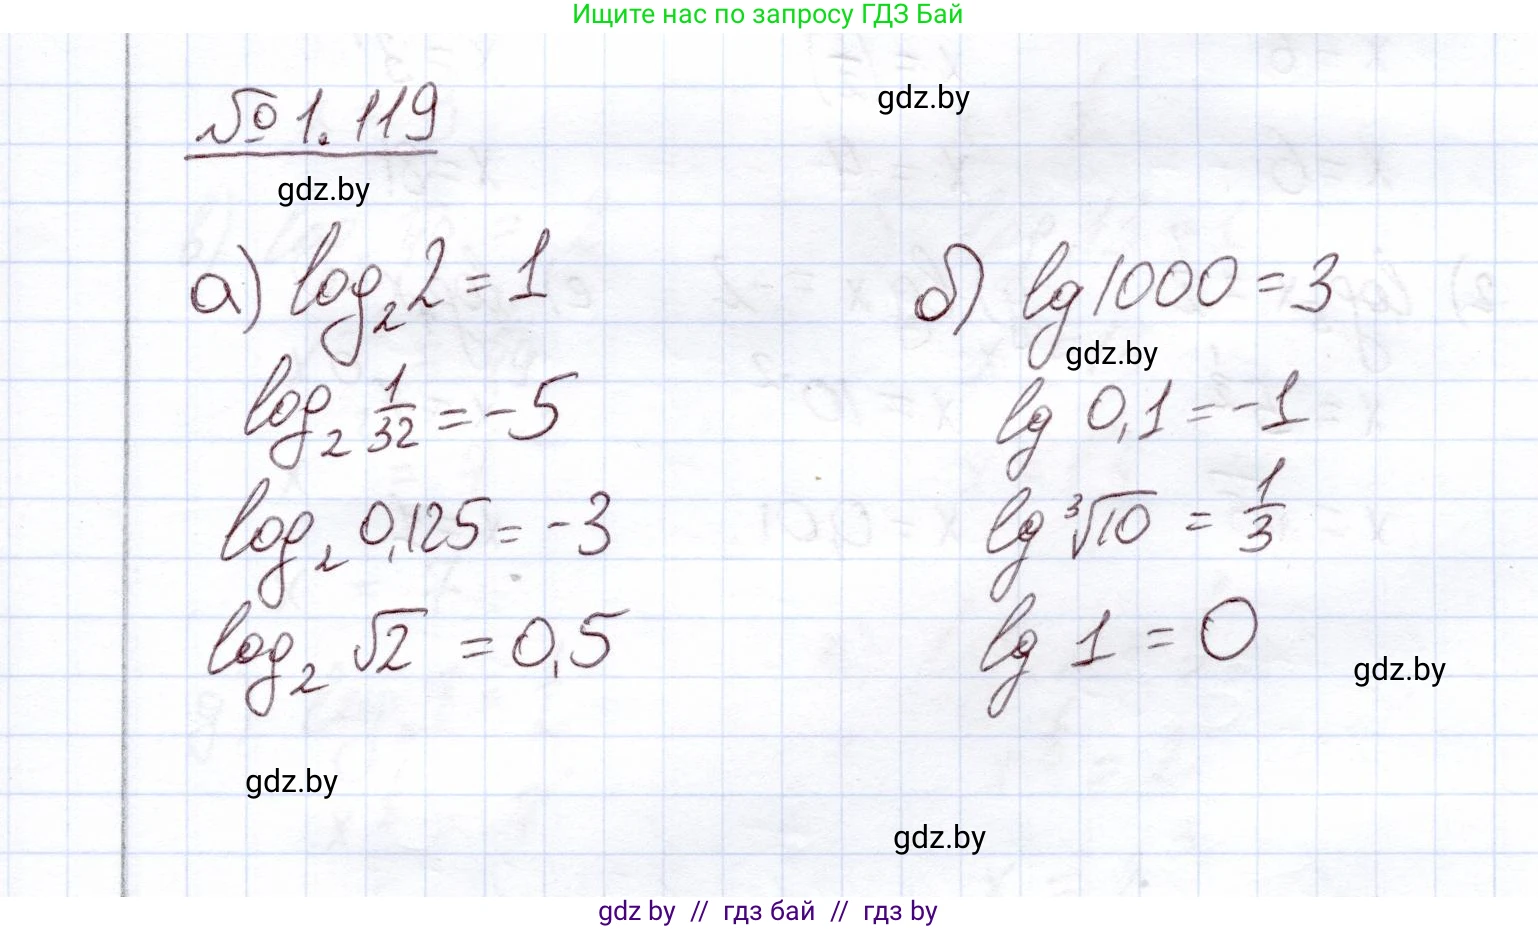 Ищите нас по запросу ГДЗ Бай
№ 1.119
gdz.by
gdz.by
а) log₂ 2 = 1
log₂ 1/32 = -5
log₂ 0,125 = -3
log₂ √2 = 0,5
б) lg 1000 = 3
gdz.by
lg 0,1 = -1
lg ³√10 = 1/3
lg 1 = 0
gdz.by
gdz.by
gdz.by
gdz by // гдз бай // гдз by